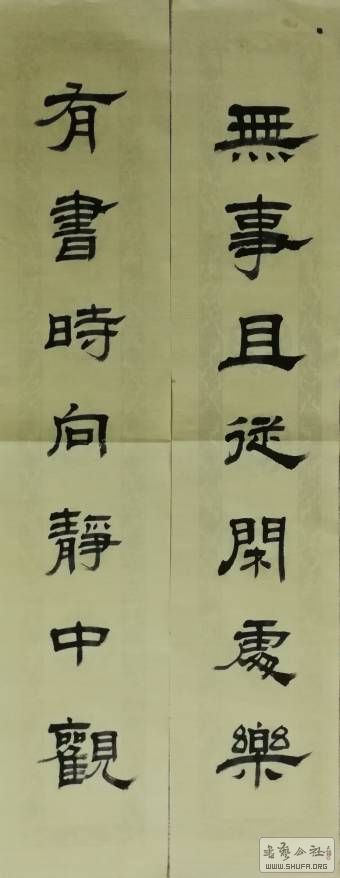 無事且従閑處樂
有書時向靜中觀
書藝公社
WWW.SHUFA.ORG